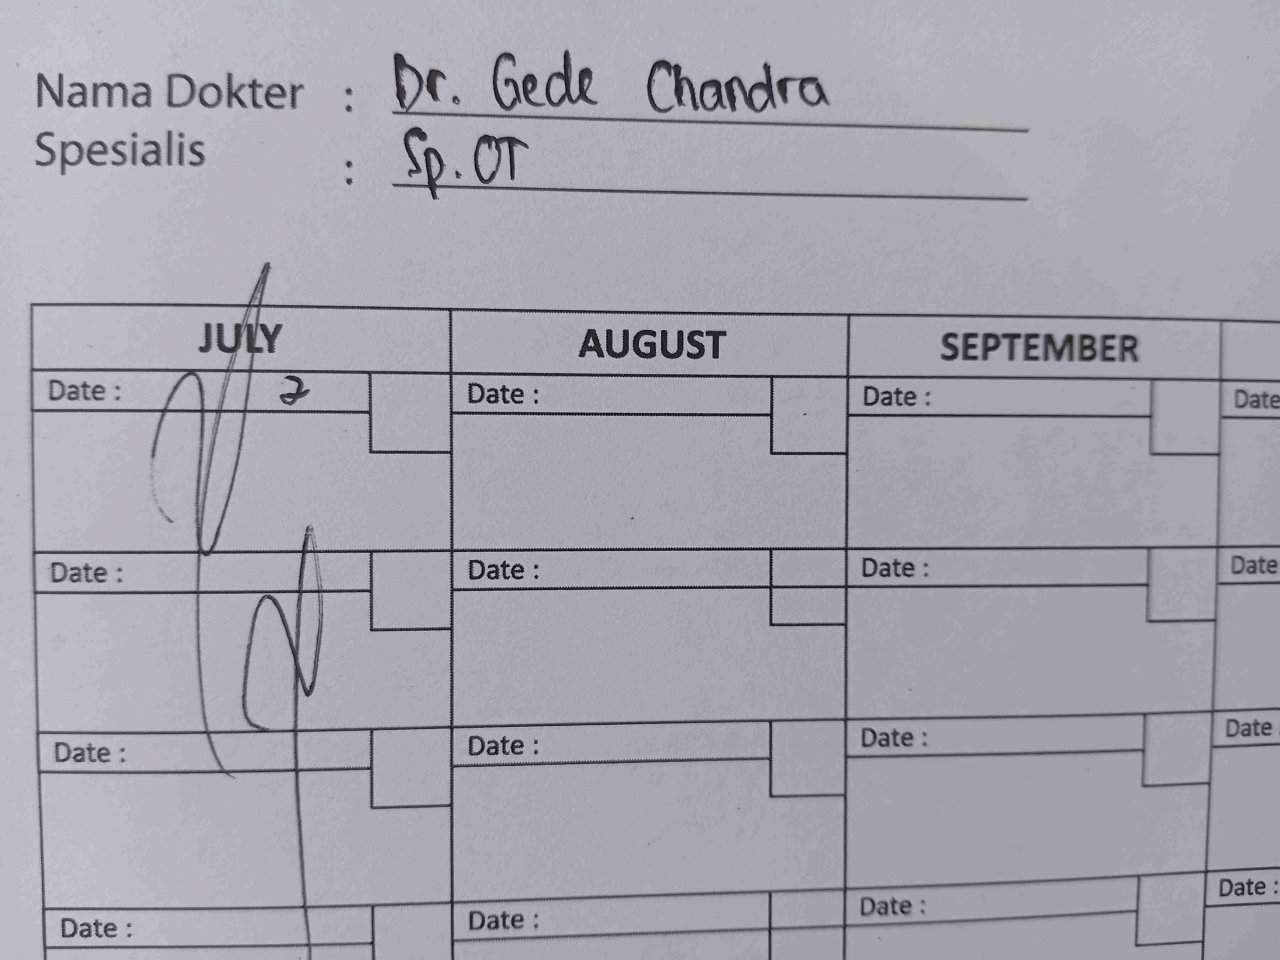 Nama Dokter : Dr. Gede Chandra
Spesialis : Sp. OT
JULY AUGUST SEPTEMBER
Date : 2 Date : Date : Date
Date : Date : Date : Date
Date : Date : Date : Date
Date : Date : Date : Date :